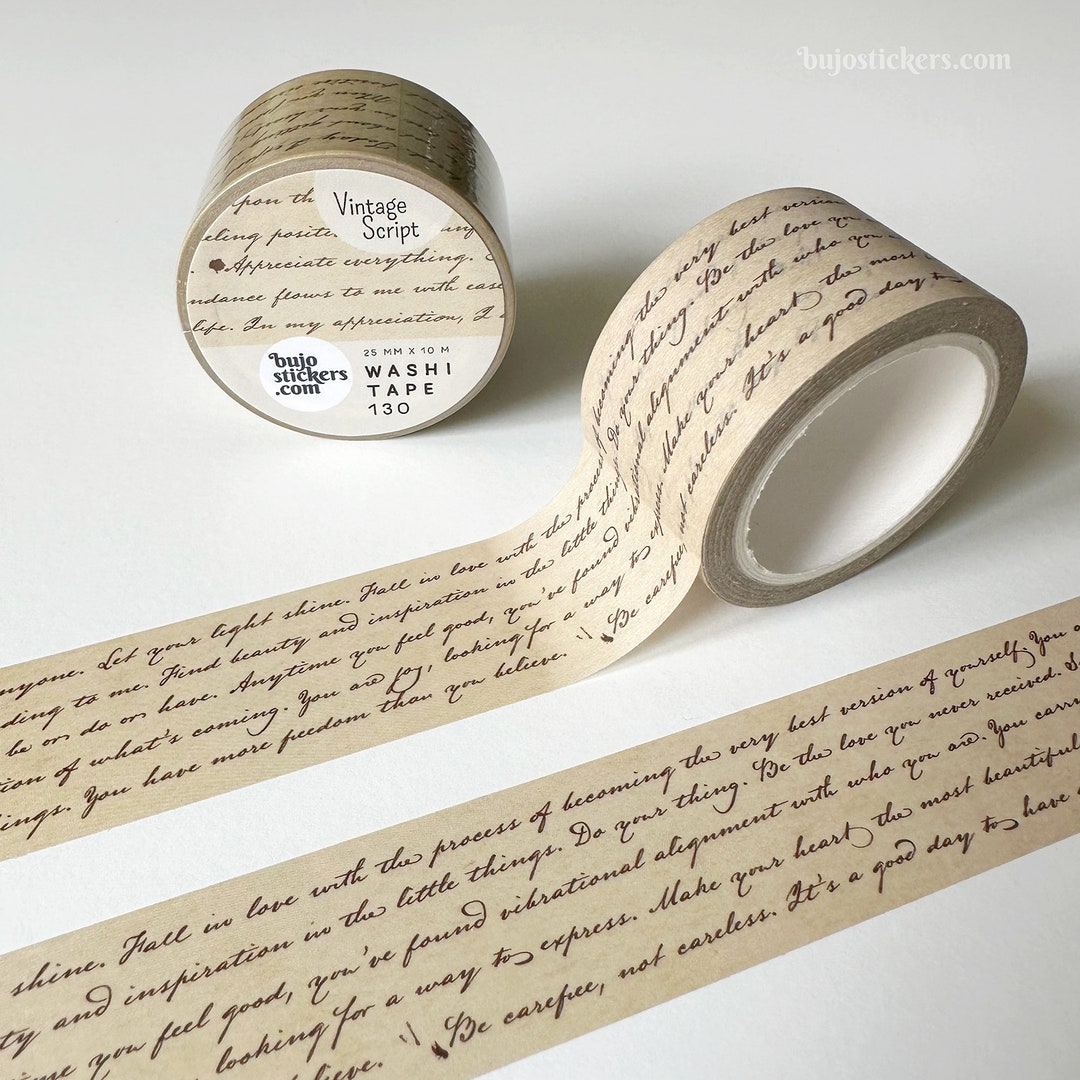 bujostickers.com
Vintage
Script
upon th
eling positi
Appreciate everything.
ndance flows to me with ease
life. In my appreciation, I
bujo
stickers
.com
25 MM X 10 M
WASHI
TAPE
130
becoming the very best version
Do your thing. Be the love you
vibrational alignment with who you
express. Make your heart the most
not careless. It's a good day to
nyone. Let your light shine. Fall in love with the process of
ding to me. Find beauty and inspiration in the little things.
be or do or have. Anytime you feel good, you've found
tion of what's coming. You are joy, looking for a way to
ings. You have more freedom than you believe. Be carefree,
shine. Fall in love with the process of becoming the very best version of yourself. You
ty and inspiration in the little things. Do your thing. Be the love you never received.
me you feel good, you've found vibrational alignment with who you are. You
looking for a way to express. Make your heart the most beautiful
lieve. Be carefree, not careless. It's a good day to have